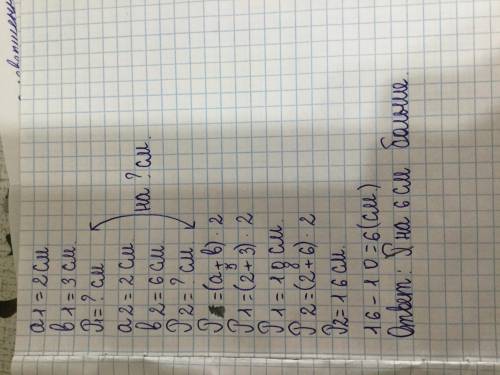 a1 = 2 см
в1 = 3 см
P1 = ? см
на ? см.
a2 = 2 см
в2 = 6 см
P2 = ? см
P = (a + b) · 2
P1 = (2 + 3) · 2
P1 = 10 см
P2 = (2 + 6) · 2
P2 = 16 см.
16 - 10 = 6 (см)
Ответ: P на 6 см больше.